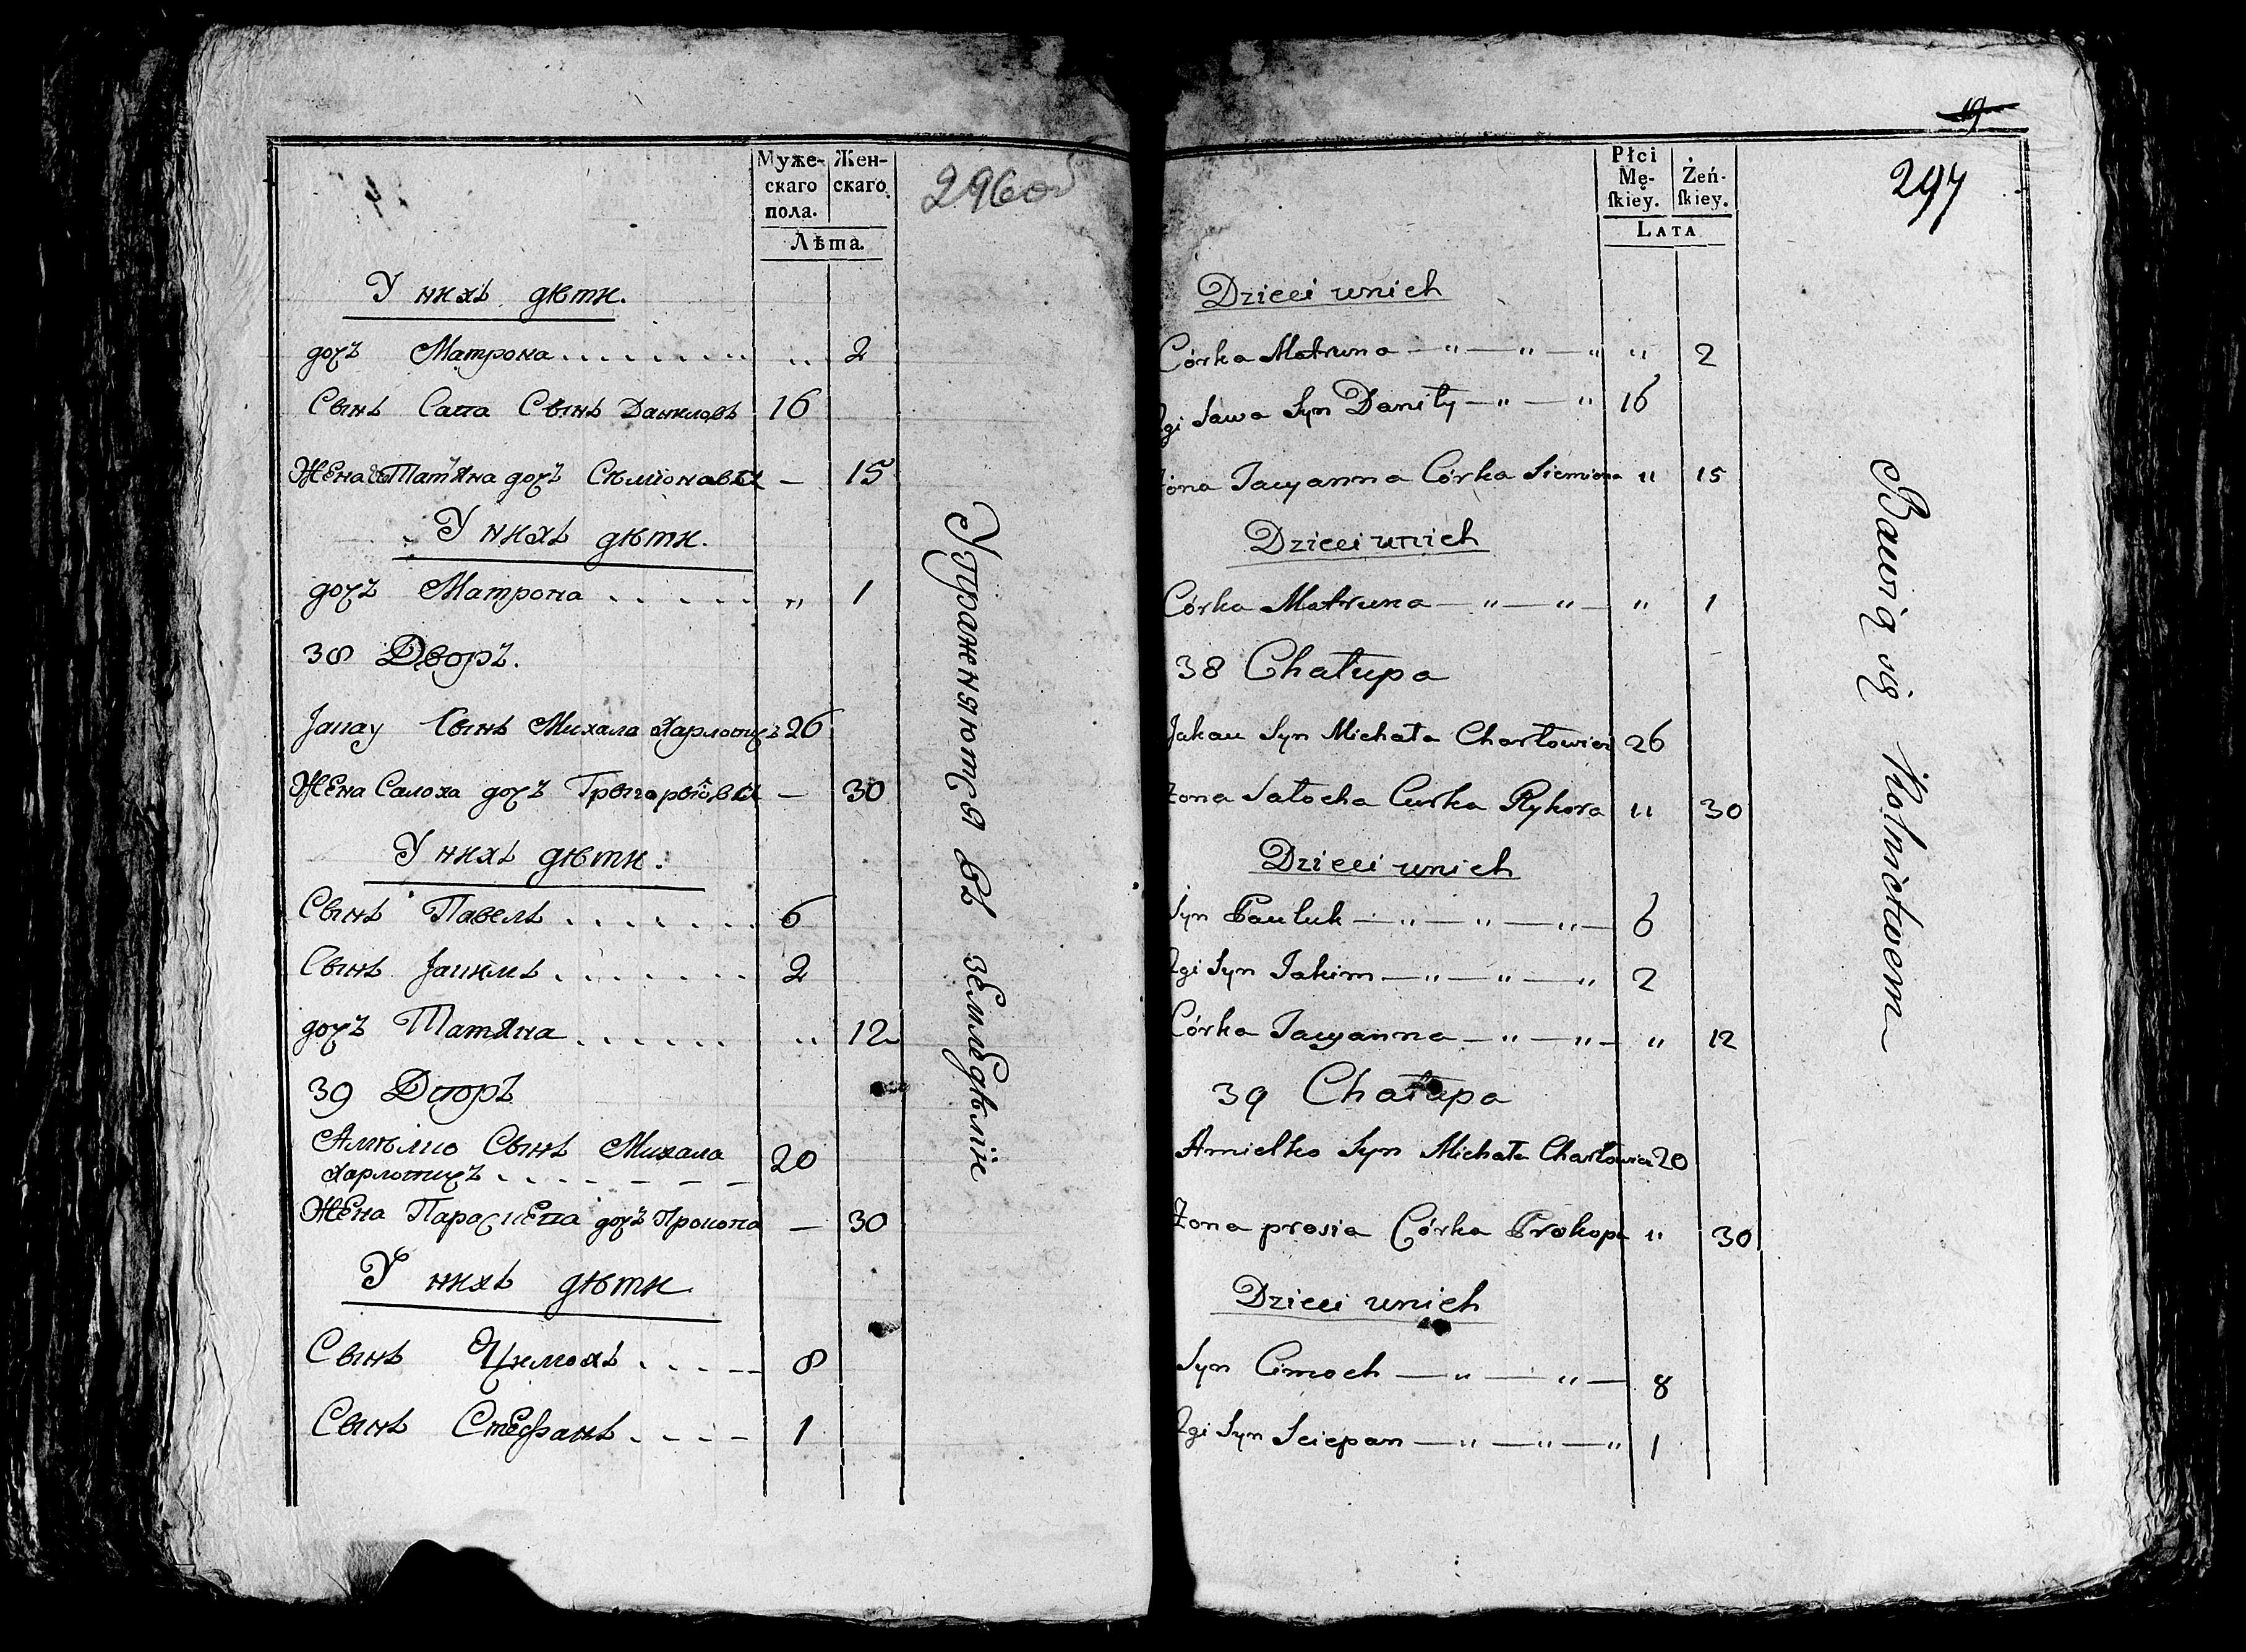 Муже-
скаго
пола.
Жен-
скаго
Лѣта.
296об
У нихъ дѣти.
дочъ Матрона . . . . . . . . „ 2
Сынъ Сава Сынъ Даниловъ 16
Жена Татяна дочъ Сѣмiонавы — 15
У нихъ дѣти.
дочъ Матрона . . . . . . „ 1
38 Дворъ.
Jакау Сынъ Михала Харловичъ 26
Жена Салоха дочъ Грыгорыiовы — 30
У нихъ дѣти.
Сынъ Павелъ . . . . . . . 6
Сынъ Jакимъ . . . . . . . 2
дочъ Татяна . . . . . . „ 12
39 Дворъ
Амѣлко Сынъ Михала 20
Харловичъ . . . . . .
Жена Параскева дочъ Прокопа — 30
У нихъ дѣти
Сынъ Цимохъ . . . . . 8
Сынъ Стефанъ . . . . 1
Упражняются въ земледѣлiи
19
Płci
Mę-
ſkiey.
Żeń-
ſkiey.
LATA
297
Dzieci unich
Córka Matruna — „ — „ — „ „ 2
2gi Sawa Syn Daniły — „ — „ 16
żona Tacyanna Córka Siemiona „ 15
Dzieci unich
Córka Matruna — „ — „ — „ 1
38 Chałupa
Jakau Syn Michała Charłowicz 26
żona Sałocha Curka Rykora „ 30
Dzieci unich
Syn Pauluk — „ — „ — „ — 6
2gi Syn Jakim — „ — „ — „ 2
Córka Tacyanna — „ — „ — „ 12
39 Chałupa
Amiełko Syn Michała Charłowicz 20
żona prosia Córka Prokopa „ 30
Dzieci unich
Syn Cimoch — „ — „ — 8
2gi Syn Sciepan — „ — „ — „ 1
Bawią się Rolnictwem